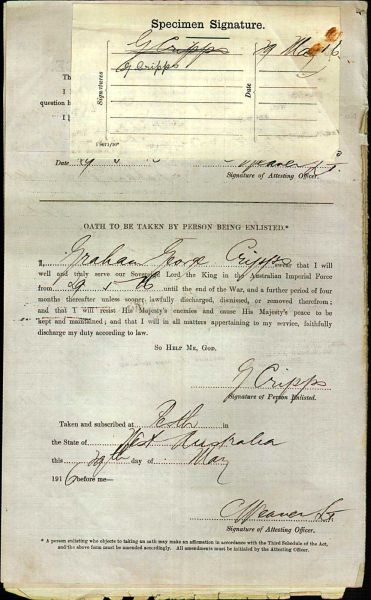 Specimen Signature.
G Cripps 29 May 16
G Cripps
Signatures
Date
Th
I
question h
I
Date 29 5 16 C Weaver Lt.
Signature of Attesting Officer.
OATH TO BE TAKEN BY PERSON BEING ENLISTED.*
I, Graham George Cripps swear that I will
well and truly serve our Sovereign Lord the King in the Australian Imperial Force
from 29 5 16 until the end of the War, and a further period of four
months thereafter unless sooner lawfully discharged, dismissed, or removed therefrom;
and that I will resist His Majesty's enemies and cause His Majesty's peace to be
kept and maintained; and that I will in all matters appertaining to my service, faithfully
discharge my duty according to law.
SO HELP ME, GOD.
G Cripps
Signature of Person Enlisted.
Taken and subscribed at Perth in
the State of West Australia
this 29th day of May
1916 before me—
C Weaver Lt
Signature of Attesting Officer.
* A person enlisting who objects to taking an oath may make an affirmation in accordance with the Third Schedule of the Act,
and the above form must be amended accordingly. All amendments must be initialed by the Attesting Officer.